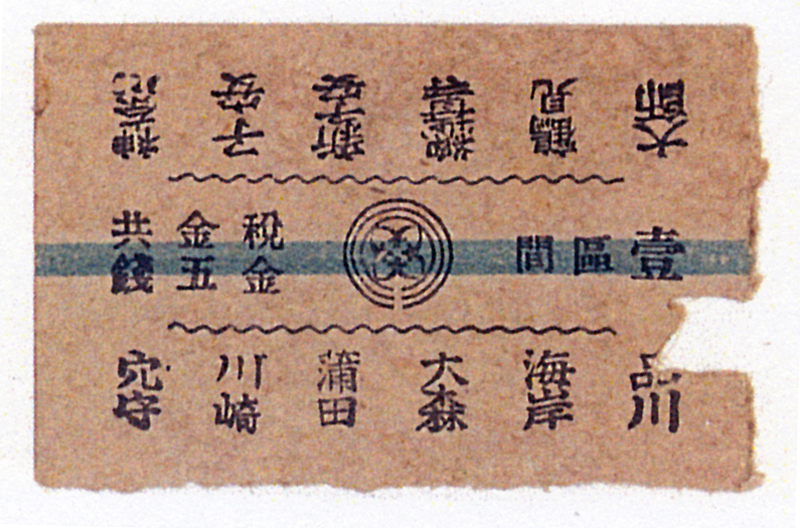 神奈川
子安
新子安
總持寺
鶴見
大師
壹區間
税金共
金五錢
品川
海岸
大森
蒲田
川崎
穴守